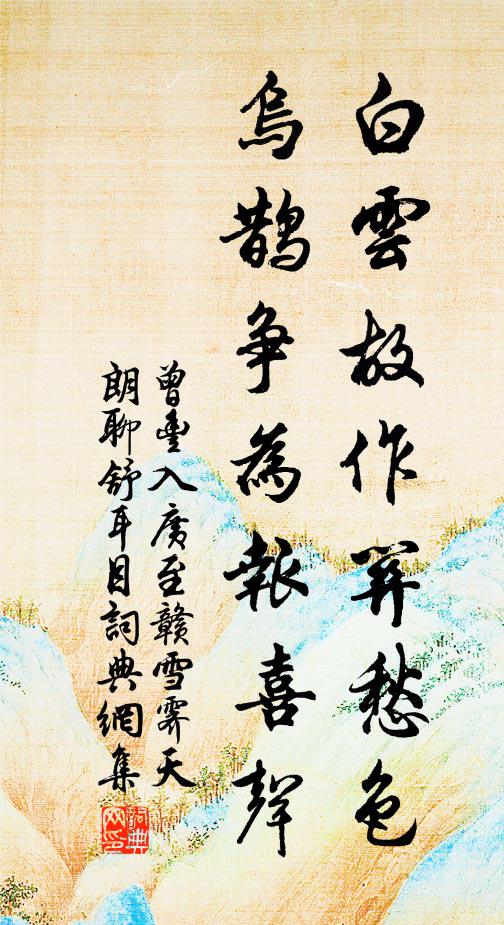 白雲故作開愁色
烏鵲争為報喜聲
曾豐入廣至贛雪霽天
朗聊舒耳目詞典網集
詞典网印